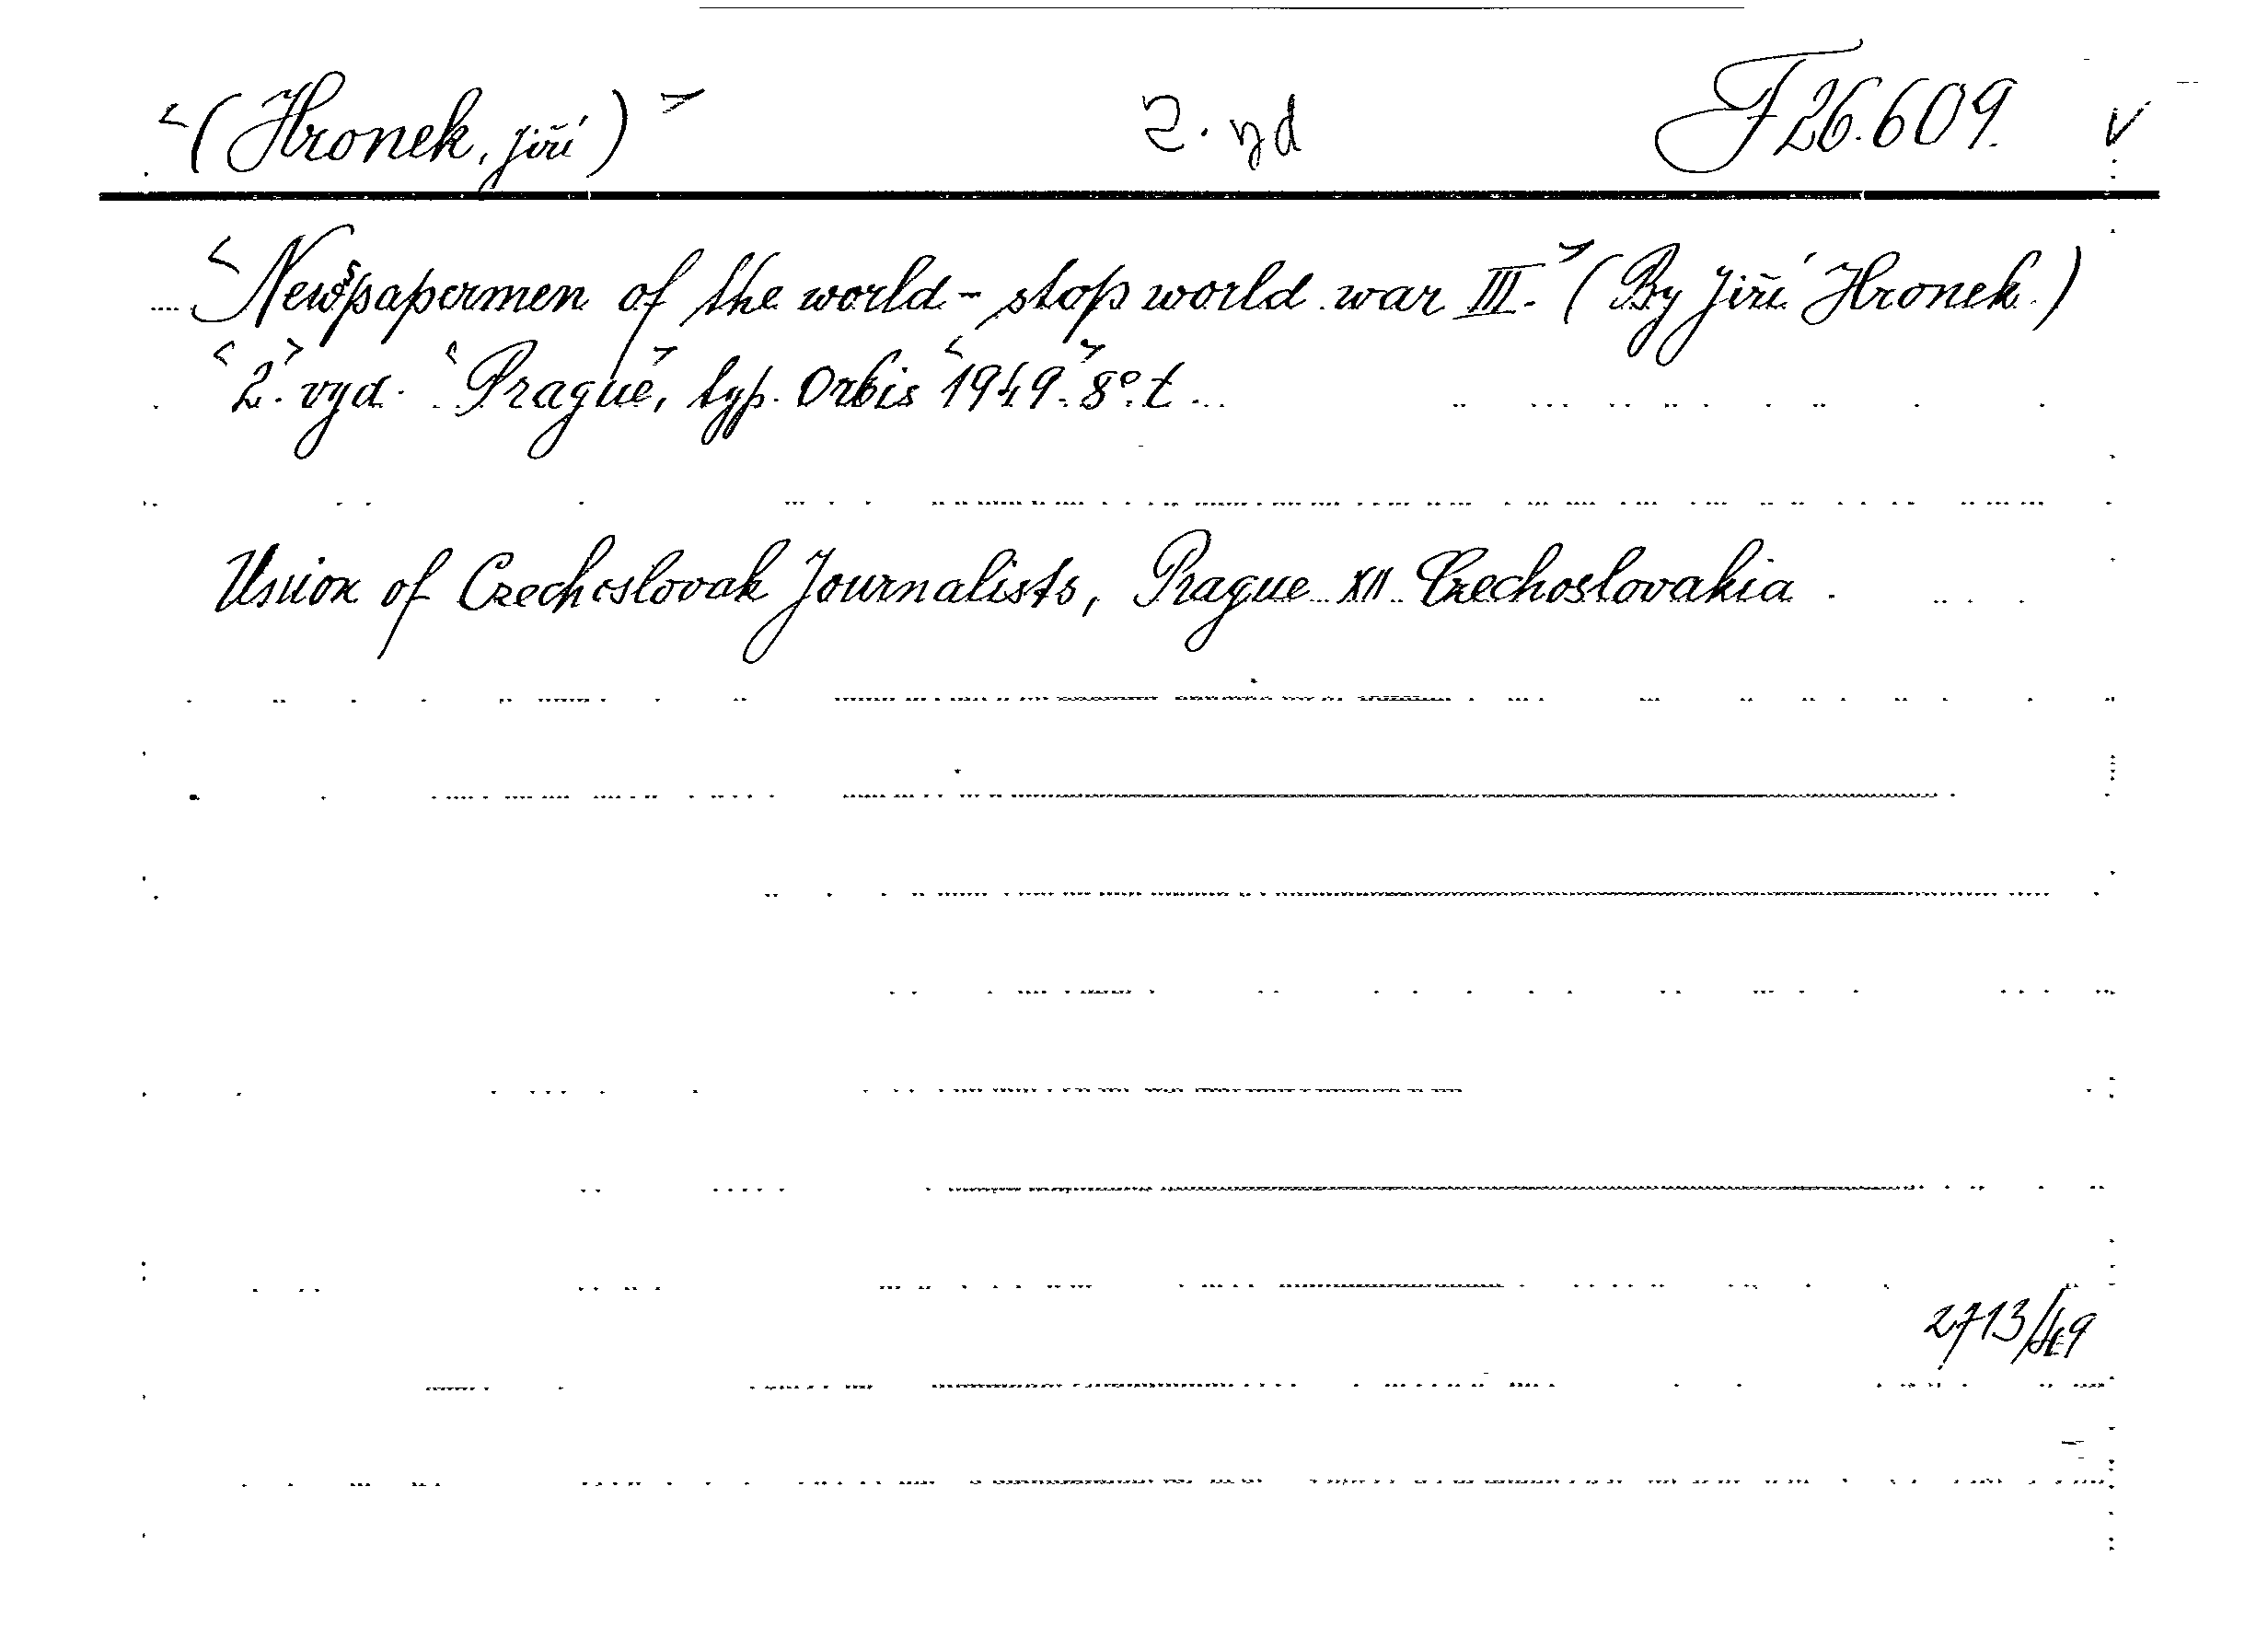 <(Hronek, Jiří)> 2. yd F 26.609. v
<Newspapermen of the world - stop world war III.> (By Jiří Hronek.)
<2.> vyd. <Prague>, typ. Orbis <1949.> 8°. t.
Union of Czechoslovak Journalists, Prague XII Czechoslovakia.
2713/49